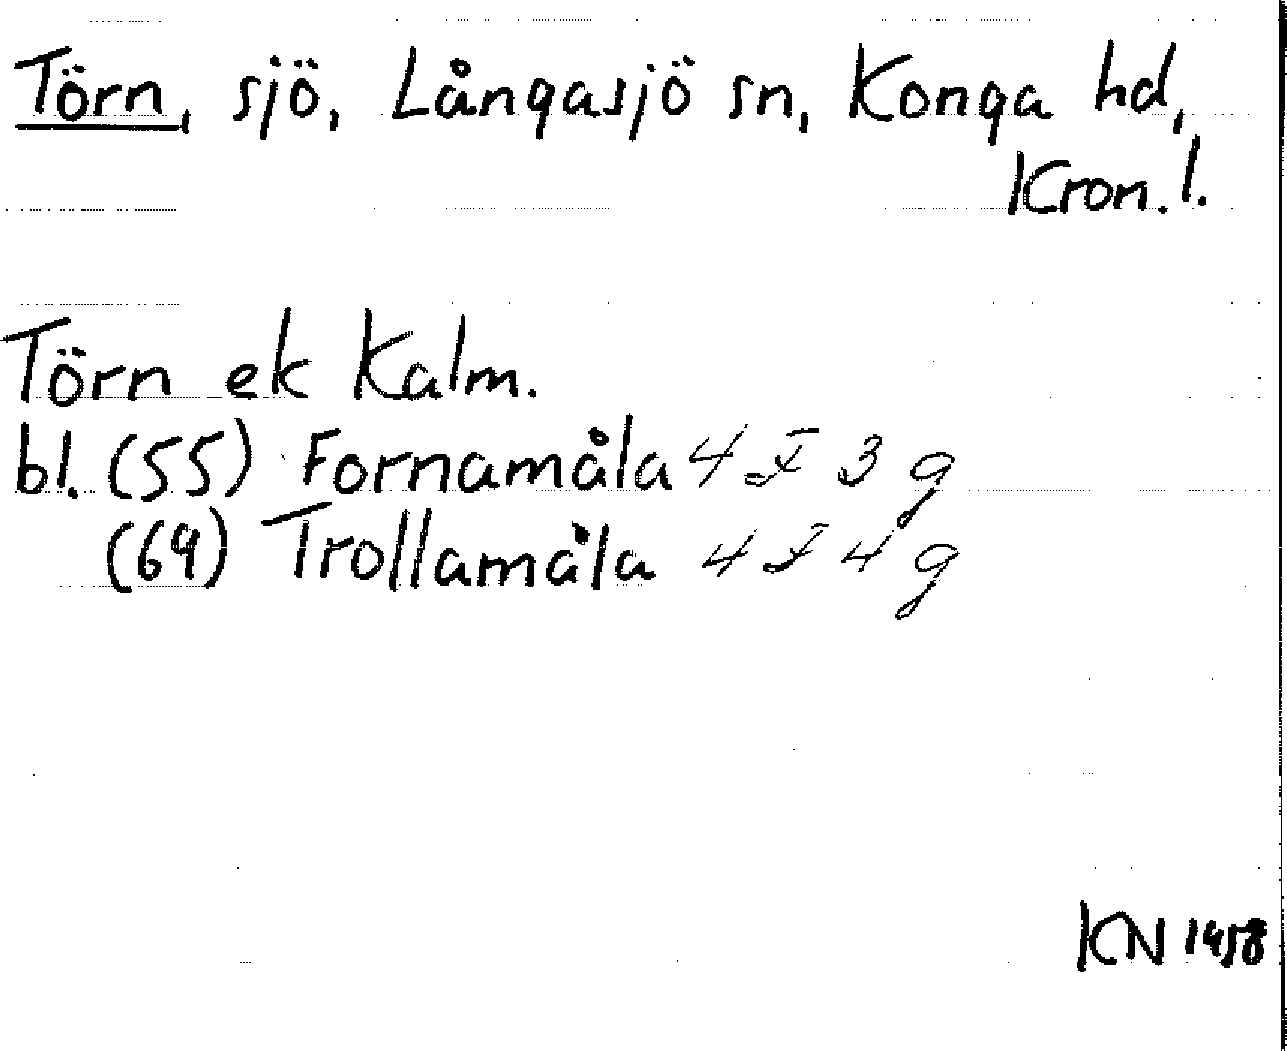 Törn, sjö, Långasjö sn, Konga hd,
Kron.l.
Törn ek Kalm.
bl. (55) Fornamåla 4 F 3 g
(69) Trollamåla 4 F 4 g
KN 1458